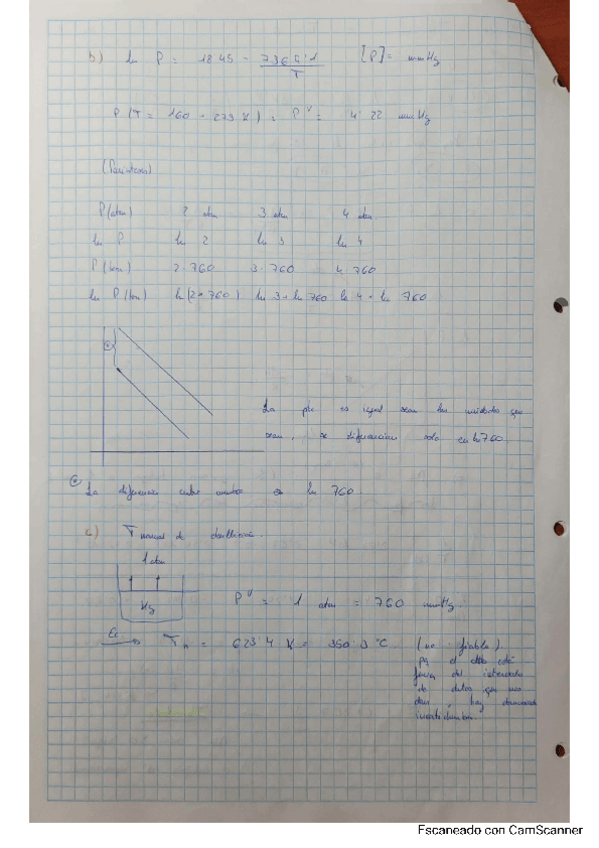 b) ln P = 18'45 - 7365'1 / T [P] = mmHg
P (T = 160 + 273 K) = P^V = 4'22 mmHg
(Paréntesis)
P(atm) 2 atm 3 atm 4 atm
ln P ln 2 ln 3 ln 4
P(torr) 2·760 3·760 4·760
ln P(torr) ln(2·760) ln 3 + ln 760 ln 4 + ln 760
La pte es igual sean las unidades que
sean, se diferencian solo en ln 760.
La diferencia entre ambas es ln 760.
c) T normal de
1 atm
Hg
P^V = 1 atm = 760 mmHg.
= 623'4 K = 350'3 °C (no fiable)
pq el está
fuera del intervalo
de datos que nos
dan, hay demasiada
incertidumbre.
Escaneado con CamScanner